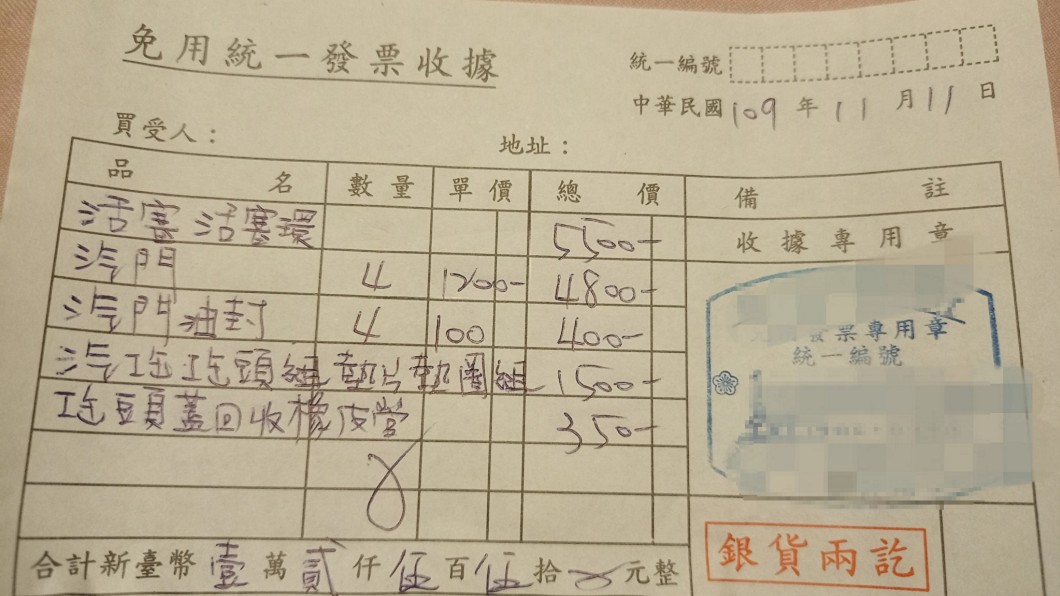 免用統一發票收據
統一編號
中華民國109年11月11日
買受人：
地址：
品名 數量 單價 總價 備註
活塞 活塞環 5500-
收據專用章
汽門 4 1200- 4800-
汽門油封 4 100 400-
發票專用章
統一編號
汽缸缸頭組墊片墊圈組 1500-
缸頭蓋回收橡皮管 350-
合計新臺幣壹萬貳仟伍百伍拾元整
銀貨兩訖